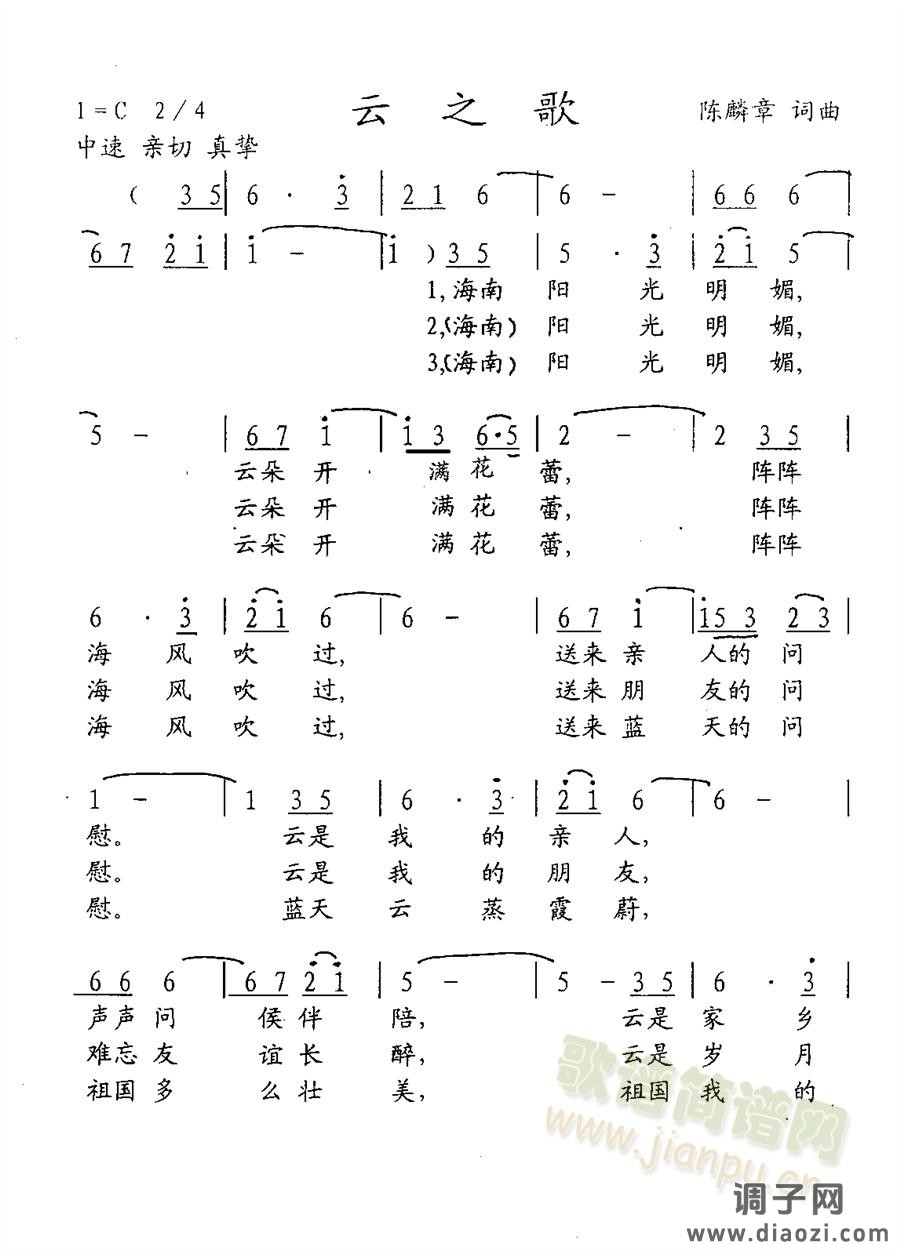 1=C 2/4 云之歌 陈麟章 词曲
中速 亲切 真挚
( 3 5 | 6 · 3 | 2 1 6 | 6 - | 6 6 6 |
6 7 2 1 | 1 - | 1 ) 3 5 | 5 · 3 | 2 1 5 |
1,海南 阳 光 明 媚,
2,(海南) 阳 光 明 媚,
3,(海南) 阳 光 明 媚,
5 - | 6 7 1 | 1 3 6·5 | 2 - | 2 3 5 |
云朵 开 满 花 蕾, 阵阵
云朵 开 满 花 蕾, 阵阵
云朵 开 满 花 蕾, 阵阵
6 · 3 | 2 1 6 | 6 - | 6 7 1 | 1 5 3 2 3 |
海 风 吹 过, 送来 亲 人的 问
海 风 吹 过, 送来 朋 友的 问
海 风 吹 过, 送来 蓝 天的 问
1 - | 1 3 5 | 6 · 3 | 2 1 6 | 6 -
慰。 云是 我 的 亲 人,
慰。 云是 我 的 朋 友,
慰。 蓝天 云 蒸 霞 蔚,
6 6 6 | 6 7 2 1 | 5 - | 5 - 3 5 | 6 · 3 |
声声 问 侯 伴 陪, 云是 家 乡
难忘 友 谊 长 醉, 云是 岁 月
祖国 多 么 壮 美, 祖国 我 的
歌谱简谱网
www.jianpu.cn
调子网
www.diaozi.com